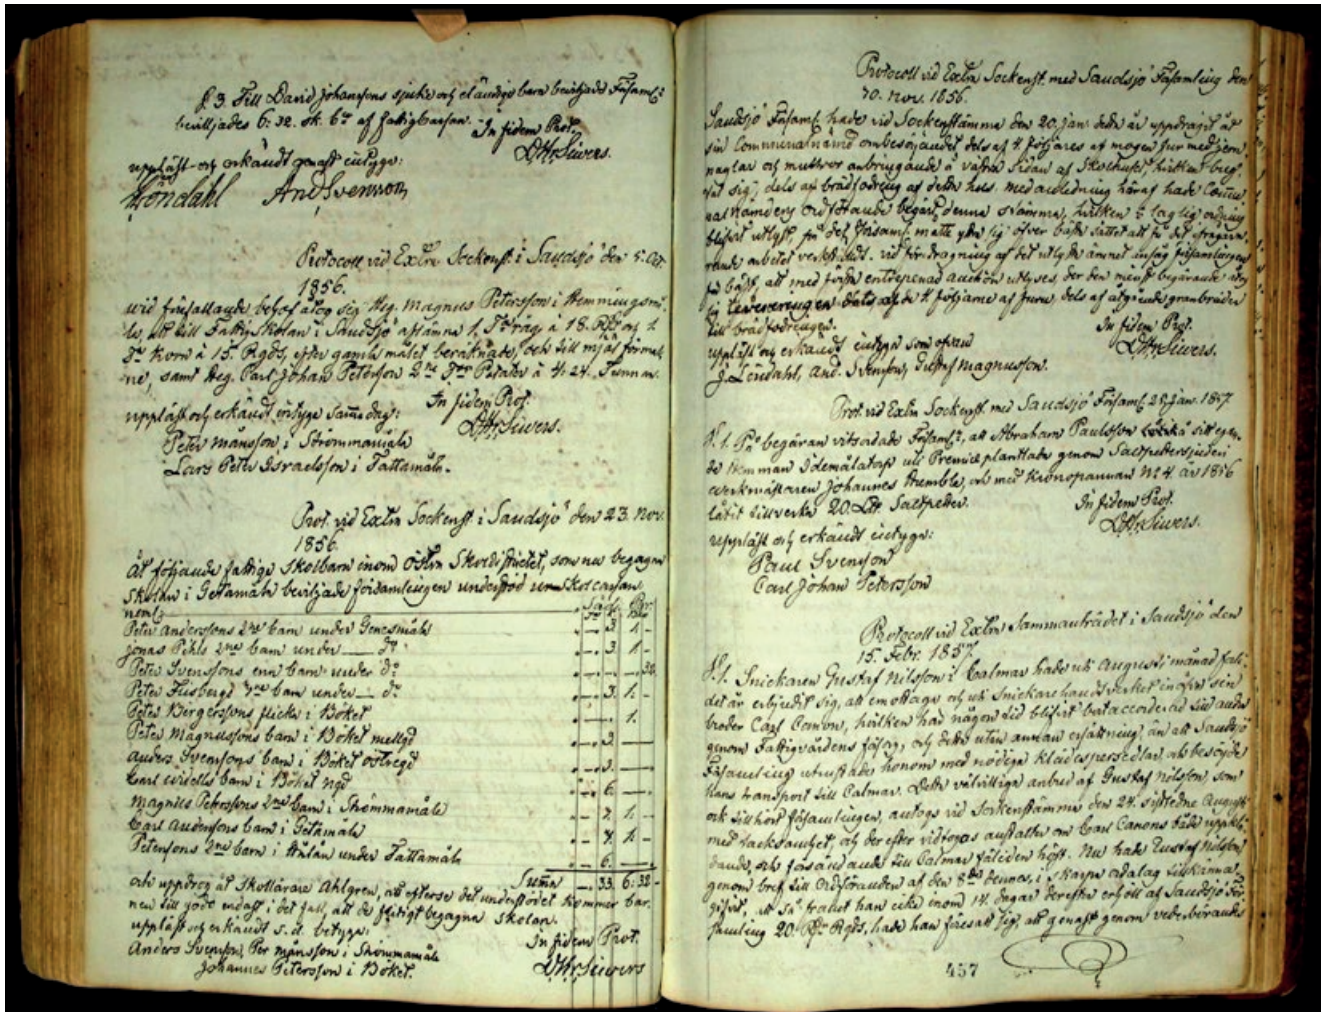 § 3. Till David Johanssons sjuka och eländiga barn beviljade Församl:
beviljades 6: 32. sk. b:o af fattigcassan. In fidem Prot.
uppläst och erkändt genast intyga: O Hr Siwers.
And Svensson
Protocoll vid Extra Sockenst. i Sandsjö den 5. Oct.
1856.
wid förefallande behof åtog sig Heg. Magnus Petersson i Hemmingsmå-
la, att till Fattigskolan i Sandsjö aflämna 1. T:a råg à 18. Rdr och 1.
T:a Korn à 15. Rgds, efter gamla målet beräknade, och till mjöl förmal-
ne, samt Heg. Carl Johan Petersson 2:ne T:or Potater à 4: 24. Tunnan.
uppläst och erkändt intyga samma dag: In fidem Prot.
O Hr Siwers.
Peter Månsson i Strömmamåla
Lars Peter Israelsson i Tattamåla.
Prot. vid Extra Sockenst. i Sandsjö den 23. Nov.
1856.
Åt följande fattiga skolbarn inom östra Skoldistrictet, som nu begagna
Skolan i Getamåla beviljade församlingen understöd ur Skolcassan
neml:
Peter Anderssons 2:ne barn under Genesmåla 3 1. -
Jonas Pihls 2:ne barn under d:o 3 1 -
Peter Svenssons enn barn under d:o 32.
Peter Fusbergs barn under d:o 3. 1. -
Peter Birgerssons flicka i Böket 1.
Peter Magnussons barn i Böket mellgd 3
Anders Svenssons barn i Böket östregd
Carl Widells barn i Böket ngd 6
Magnus Peterssons 2:ne barn i Strömmamåla 1.
Carl Anderssons barn i Getamåla
Peterssons 2:ne barn i under Tattamåla 6.
Summa 33. 6: 32 -
och uppdrog åt Skolläraren Ahlgren, att efterse det understödet kommer bar-
nen till godo endast i det fall, att de flitigt begagna skolan.
uppläst och erkändt s. d. betyga: In fidem Prot.
Anders Svensson, Per Månsson i Strömmamåla O Hr Siwers
Johannes Petersson i Böket.
Protocoll vid Extra Sockenst. med Sandsjö Församling den
30. Nov. 1856.
Sandsjö Församl. hade vid Sockenstämma den 20. Jan. detta år uppdragit åt
sin Communalnämnd ombesörjandet dels af 4. följares af mogen fur med jern-
naglar och muttrar anbringande å västra sidan af Skolhuset, hvilken bug-
tat sig, dels af brädfodring af detta hus. med anledning häraf hade Commu-
nalnämndens Ordförande begärt denna stämma, hvilken i laglig ordning
blifvit utlyst, för det församl. måtte yttra sig öfver bästa sättet att få det ifrågava-
rande arbetet verkstäldt. vid föredragning af det utlysta ämnet ansåg församlingen
för bäst, att med första entrepenad auction utlyses, der den minst begärande åtog
sig levereringen dels af de 4 följarne af furu, dels af afgående granbräder
till brädfodringen. In fidem Prot.
uppläst och erkändt intyga som ofvan O Hr Siwers.
J. Lendahl, And. Svensson, Gustaf Magnusson.
Prot. vid Extra Sockenst. med Sandsjö Församl. 25. Jan. 1857
§. 1. På begäran vitsordade Församl., att Abraham Paulsson å sitt egan-
de hemman Idemålatorp uti Premieplantlada genom Saltpettersjuderi
werkmästaren Johannes Humble, och med Kronopannan N:o 4. år 1856
låtit tillverka 20. Salpetter. In fidem Prot.
uppläst och erkändt intyga: O Hr Siwers.
Paul Svensson
Carl Johan Petersson
Protocoll vid Extra Sammanträdet i Sandsjö den
15. Febr. 1857.
§. 1. Snickaren Gustaf Nilsson i Calmar hade uti Augusti månad sist-
det år erbjudit sig, att emottaga och uti Snickare handtverket inöfva sin
broder Carl Canon, hvilken här någon tid blifvit bortaccorderad till andra
genom Fattigvårdens försorg, och detta utan annan ersättning, än att Sandsjö
Församling utrustade honom med nödiga klädespersedlar, och besörjde
hans transport till Calmar. Detta välvilliga anbud af Gustaf Nilsson, som
ock tillhört församlingen, antogs vid Sockenstämma den 24. sistledne Augusti
med tacksamhet, och derefter vidtogos anstalter om Carl Canons både uppklä-
dande, och försändande till Calmar sistliden höst. Nu hade Gustaf Nilsson
genom bref till Ordföranden af den 8:de dennes, i skarpa ordalag tillkänna-
gifvit, att så framt han icke inom 14. dagar derefter erhöll af Sandsjö För-
samling 20. R:dr Rgds, hade han föresatt sig, att genast genom vederbörande
457